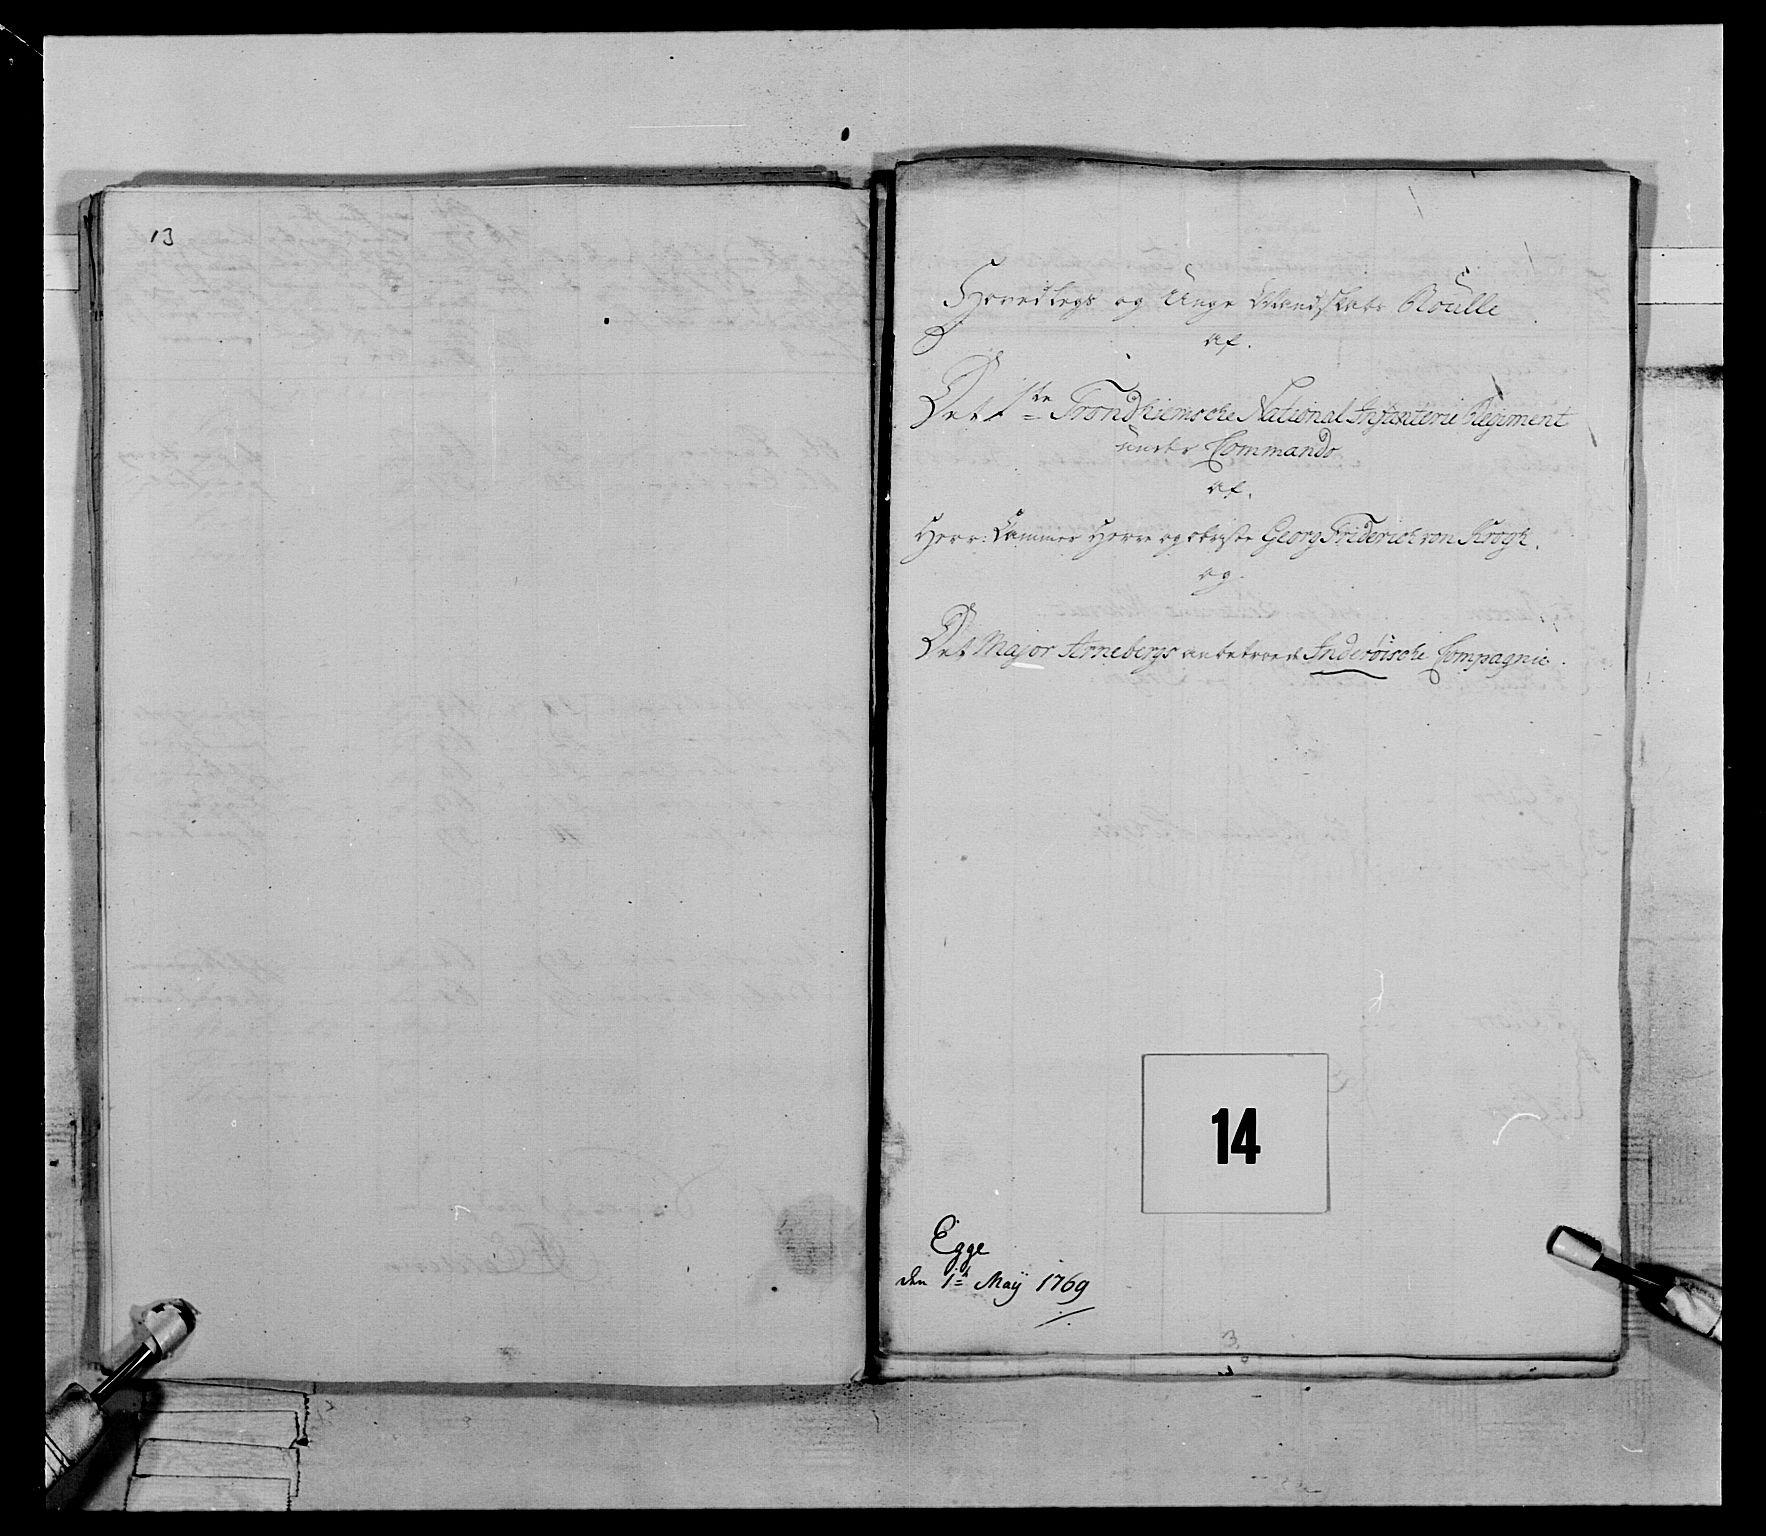 13
Hovedlegs og Unge Mandskabs Roulle
af.
Det 1ste Trondhiemsche National Infanterie Regiment
under Commando
af.
Herr: Cammer Herre og Obriste Georg Friderich von Krogh.
og.
Det Major Arnebergs anbetroede Inderöische Compagnie.
14
Egge
den 1te Maÿ 1769
3